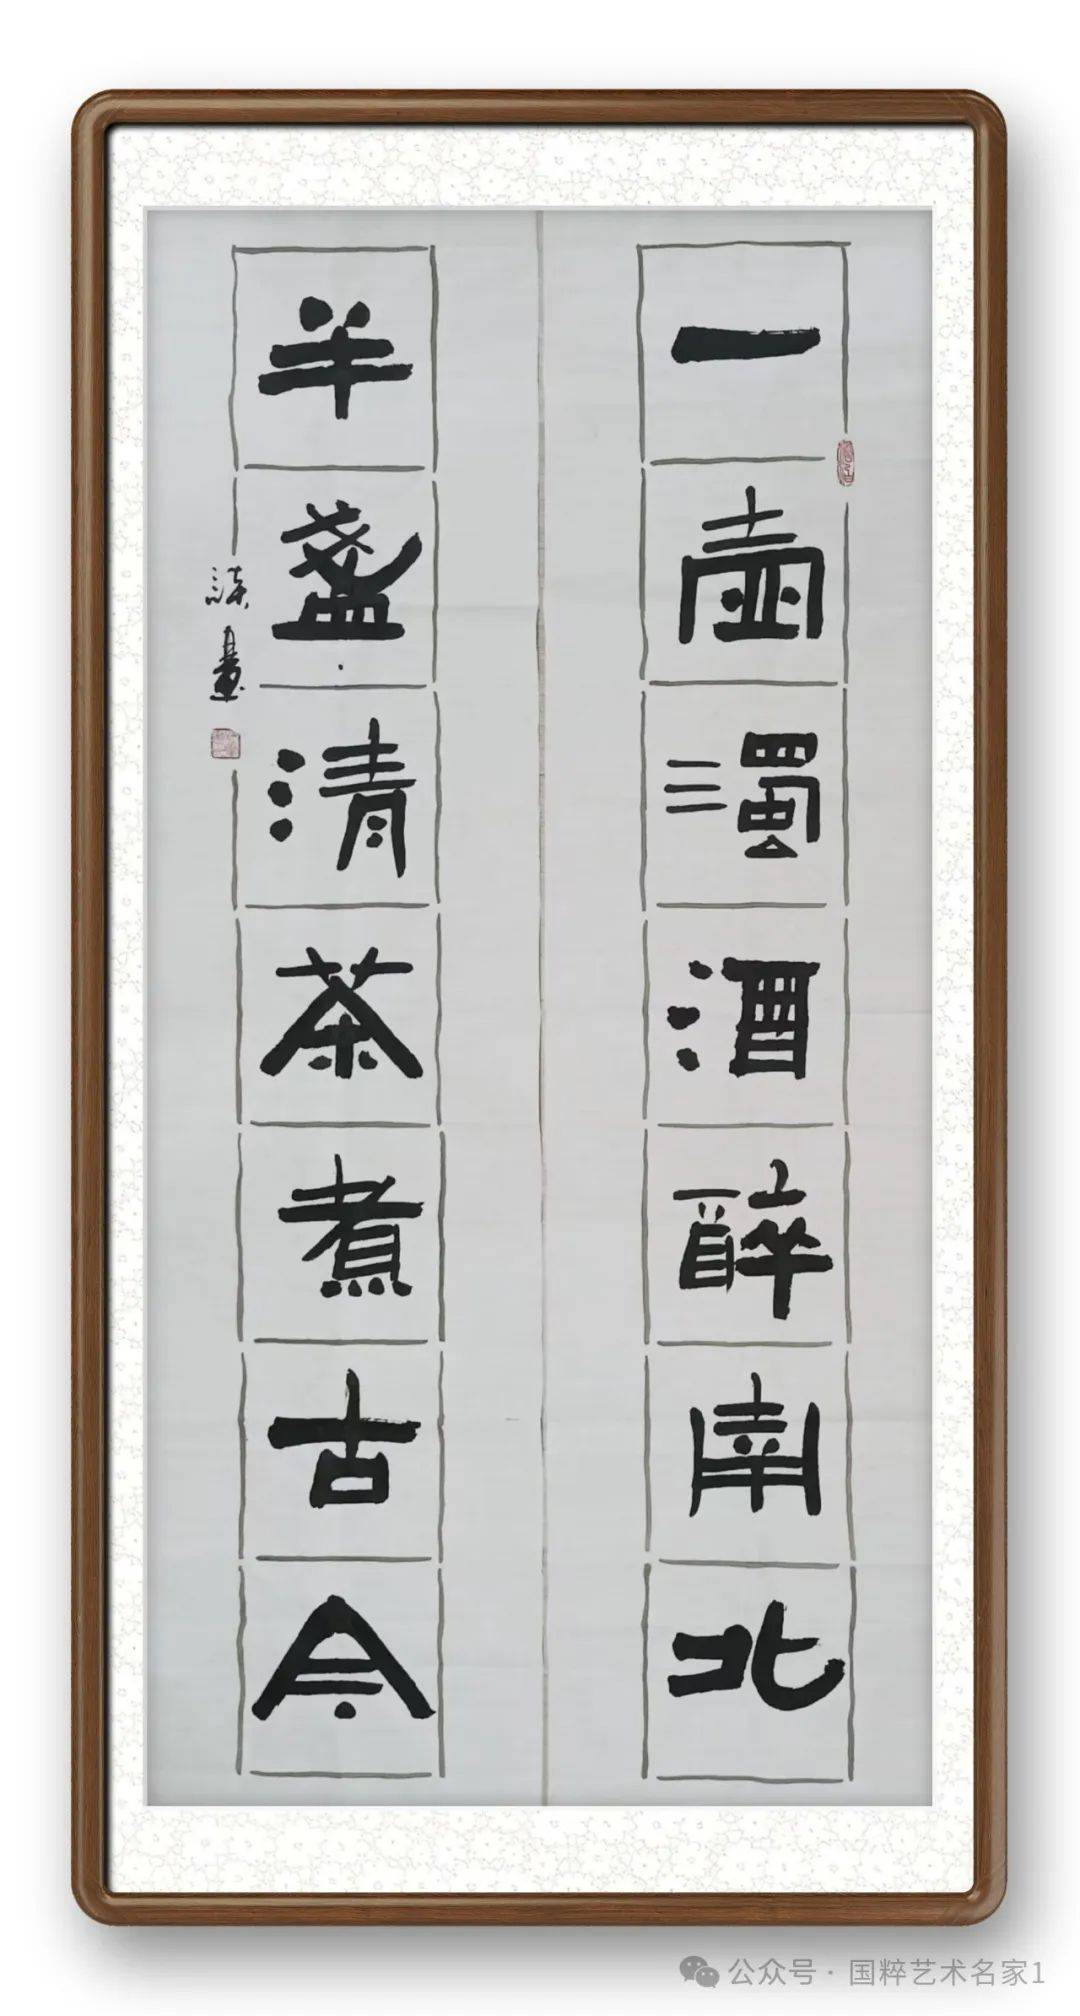 一壺濁酒醉南北
半盞清茶煮古今
公众号 · 国粹艺术名家1